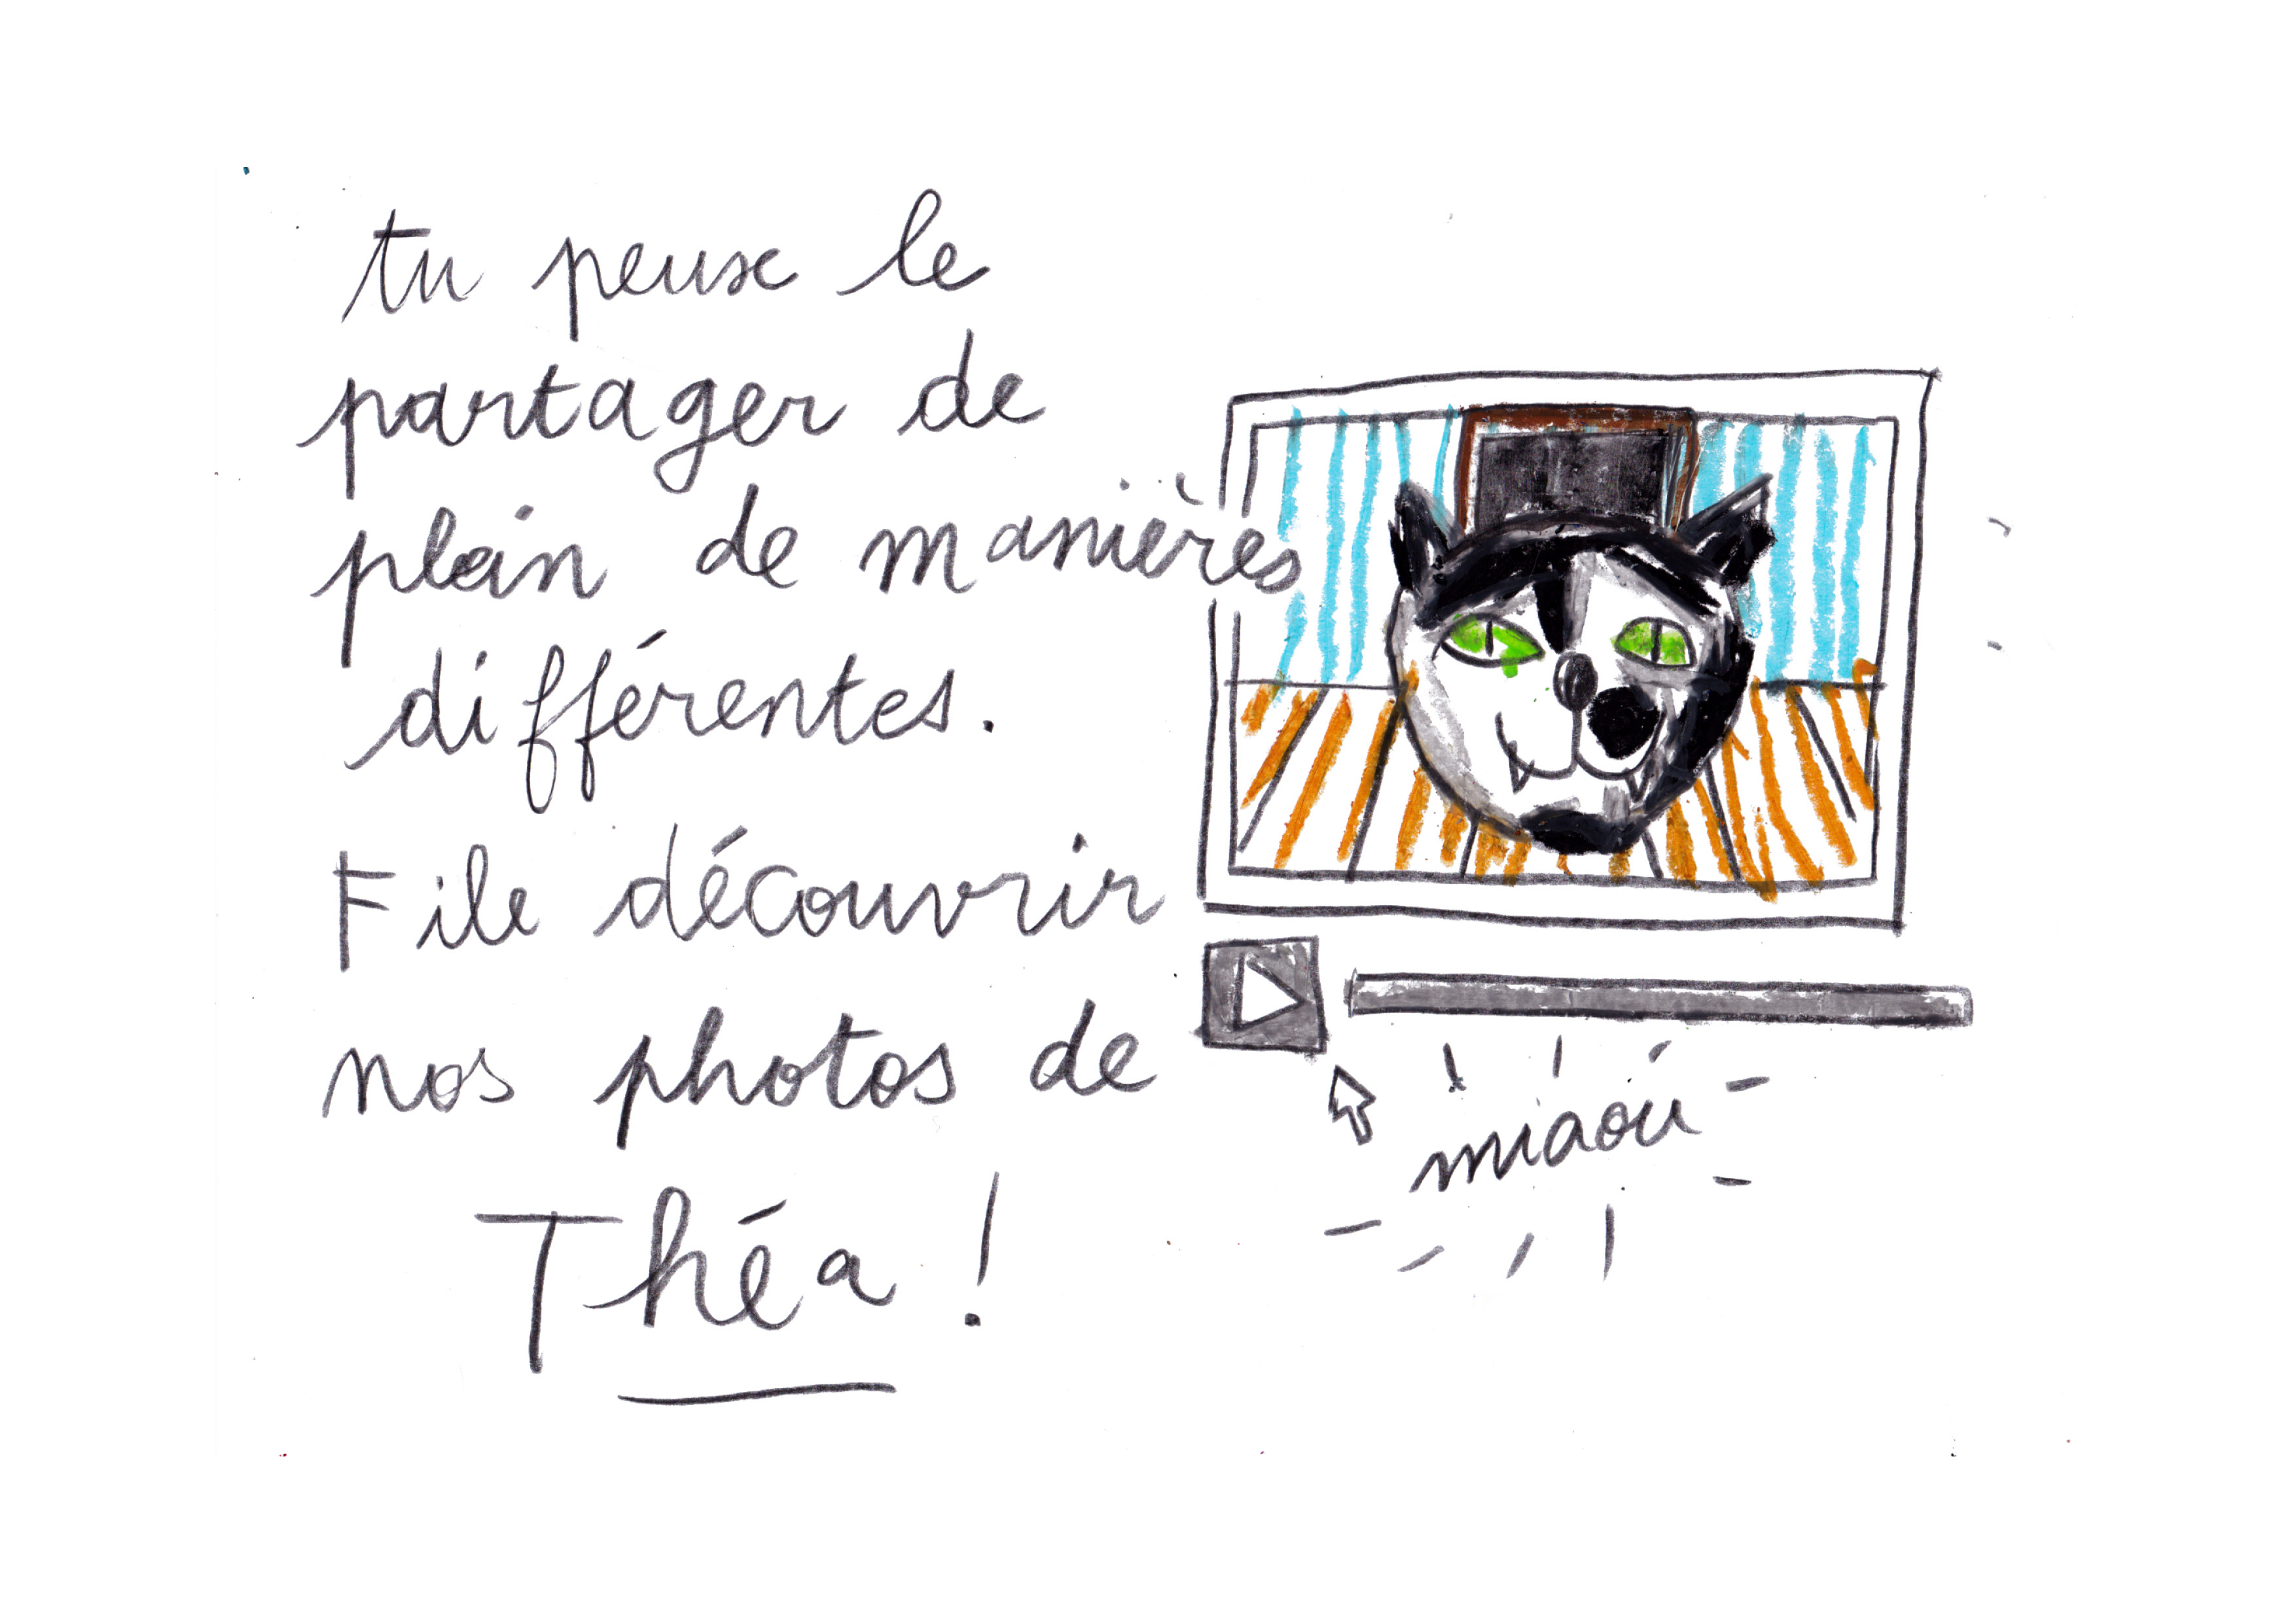 tu peux le
partager de
plein de manières
différentes.
File découvrir
nos photos de
Théa !
miaou